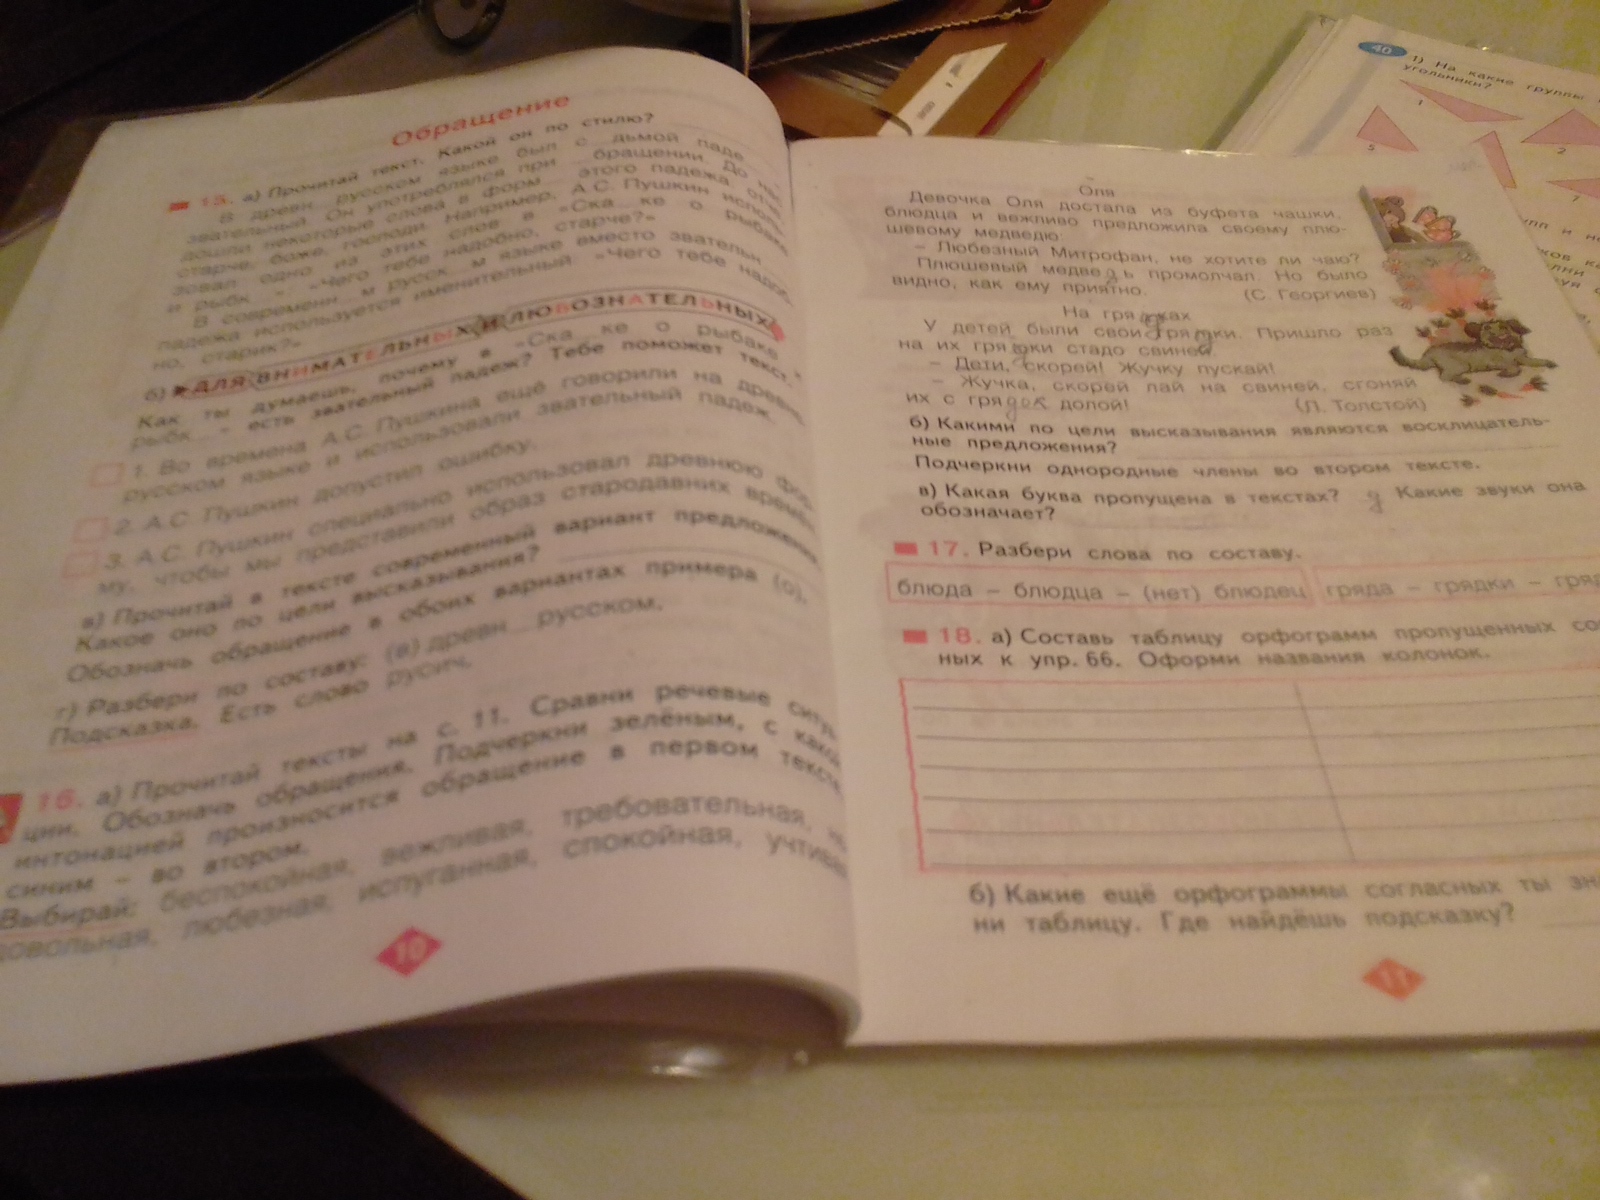 Обращение
15. а) Прочитай текст. Какой он по стилю?
В древн русском языке был с дьмой паде
звательный. Он употреблялся при бращении. До нас
дошли некоторые слова в форм этого падежа: отче,
старче, боже, господи. Например, А.С. Пушкин исполь-
зовал одно из этих слов в «Ска ке о рыбаке
и рыбк »: «Чего тебе надобно, старче?»
В современн м русск м языке вместо звательн
падежа используется именительный: «Чего тебе надоб-
но, старик?»
ДЛЯ ВНИМАТЕЛЬНЫХ И ЛЮБОЗНАТЕЛЬНЫХ
б) Как ты думаешь, почему в «Ска ке о рыбаке и
рыбк » есть звательный падеж? Тебе поможет текст.
1. Во времена А.С. Пушкина ещё говорили на древне
русском языке и использовали звательный падеж.
2. А.С. Пушкин допустил ошибку.
3. А.С. Пушкин специально использовал древнюю фор
му, чтобы мы представили образ стародавних времён
в) Прочитай в тексте современный вариант предложения
Какое оно по цели высказывания?
Обозначь обращение в обоих вариантах примера (о).
г) Разбери по составу: (в) древн русском.
Подсказка. Есть слово русич.
16. а) Прочитай тексты на с. 11. Сравни речевые ситуа
ции. Обозначь обращения. Подчеркни зелёным, с какой
интонацией произносится обращение в первом тексте
синим – во втором.
Выбирай: беспокойная, вежливая, требовательная, не
довольная, любезная, испуганная, спокойная, учтивая
10
Оля
Девочка Оля достала из буфета чашки,
блюдца и вежливо предложила своему плю-
шевому медведю:
– Любезный Митрофан, не хотите ли чаю?
Плюшевый медведь промолчал. Но было
видно, как ему приятно. (С. Георгиев)
На грядках
У детей были свои грядки. Пришло раз
на их грядки стадо свиней.
– Дети, скорей! Жучку пускай!
– Жучка, скорей лай на свиней, сгоняй
их с грядок долой! (Л. Толстой)
б) Какими по цели высказывания являются восклицатель-
ные предложения?
Подчеркни однородные члены во втором тексте.
в) Какая буква пропущена в текстах? д Какие звуки она
обозначает?
17. Разбери слова по составу.
блюда – блюдца – (нет) блюдец гряда – грядки – гряд
18. а) Составь таблицу орфограмм пропущенных со
ных к упр. 66. Оформи названия колонок.
б) Какие ещё орфограммы согласных ты зна
ни таблицу. Где найдёшь подсказку?
11
40 1) На какие группы
угольники?
1
5
2
7